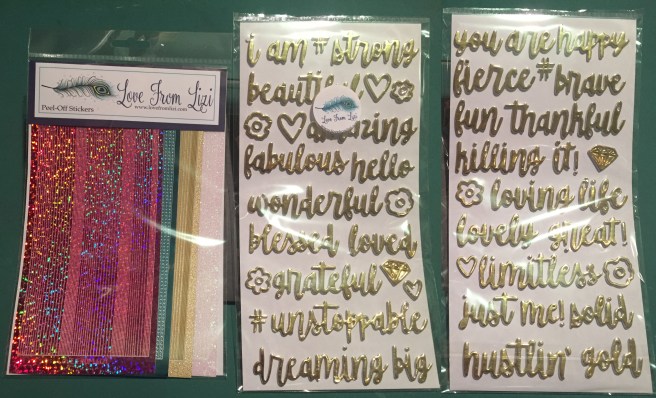 Love From Lizi
www.lovefromlizi.com
Peel-Off Stickers
i am #strong
beautiful
Love From Lizi
amazing
fabulous hello
wonderful
blessed loved
grateful
#unstoppable
dreaming big
you are happy
fierce #brave
fun thankful
killing it!
loving life
lovely great!
limitless
just me! solid
hustlin' gold